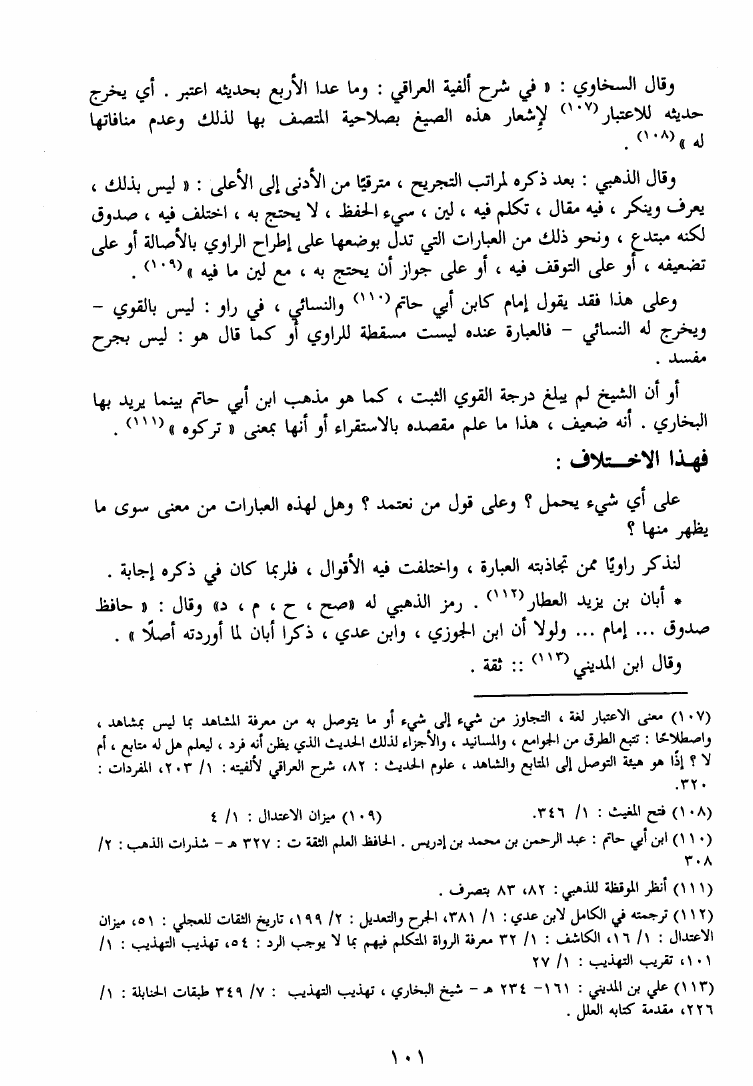 وقال السخاوي : « في شرح ألفية العراقي : وما عدا الأربع بحديثه اعتبر . أي يخرج
حديثه للاعتبار(١٠٧) لإشعار هذه الصيغ بصلاحية المتصف بها لذلك وعدم منافاتها
له »(١٠٨) .
وقال الذهبي : بعد ذكره لمراتب التجريح ، مترقيًا من الأدنى إلى الأعلى : « ليس بذلك ،
يعرف وينكر ، فيه مقال ، تكلم فيه ، لين ، سيء الحفظ ، لا يحتج به ، اختلف فيه ، صدوق
لكنه مبتدع ، ونحو ذلك من العبارات التي تدل بوضعها على إطراح الراوي بالأصالة أو على
تضعيفه ، أو على التوقف فيه ، أو على جواز أن يحتج به ، مع لين ما فيه »(١٠٩) .
وعلى هذا فقد يقول إمام كابن أبي حاتم(١١٠) والنسائي ، في راو : ليس بالقوي –
ويخرج له النسائي – فالعبارة عنده ليست مسقطة للراوي أو كما قال هو : ليس بجرح
مفسد .
أو أن الشيخ لم يبلغ درجة القوي الثبت ، كما هو مذهب ابن أبي حاتم بينما يريد بها
البخاري . أنه ضعيف ، هذا ما علم مقصده بالاستقراء أو أنها بمعنى « تركوه »(١١١) .
فهذا الاختلاف :
على أي شيء يحمل ؟ وعلى قول من نعتمد ؟ وهل لهذه العبارات من معنى سوى ما
يظهر منها ؟
لنذكر راويًا ممن تجاذبته العبارة ، واختلفت فيه الأقوال ، فلربما كان في ذكره إجابة .
* أبان بن يزيد العطار(١١٢) . رمز الذهبي له «صح ، ح ، م ، د» وقال : « حافظ
صدوق ... إمام ... ولولا أن ابن الجوزي ، وابن عدي ، ذكرا أبان لما أوردته أصلًا » .
وقال ابن المديني(١١٣) :: ثقة .
(١٠٧) معنى الاعتبار لغة ، التجاوز من شيء إلى شيء أو ما يتوصل به من معرفة المشاهد بما ليس بمشاهد ،
واصطلاحًا : تتبع الطرق من الجوامع ، والمسانيد ، والأجزاء لذلك الحديث الذي يظن أنه فرد ، ليعلم هل له متابع ، أم
لا ؟ إذًا هو هيئة التوصل إلى المتابع والشاهد ، علوم الحديث : ٨٢، شرح العراقي لألفيته : ١/ ٢٠٣، المفردات :
٣٢٠.
(١٠٨) فتح المغيث : ١/ ٣٤٦. (١٠٩) ميزان الاعتدال : ١/ ٤
(١١٠) ابن أبي حاتم : عبد الرحمن بن محمد بن إدريس . الحافظ العلم الثقة ت : ٣٢٧ هـ – شذرات الذهب : ٢/
٣٠٨
(١١١) أنظر الموقظة للذهبي : ٨٢، ٨٣ بتصرف .
(١١٢) ترجمته في الكامل لابن عدي : ١/ ٣٨١، الجرح والتعديل : ٢/ ١٩٩، تاريخ الثقات للعجلي : ٥١، ميزان
الاعتدال : ١/ ١٦، الكاشف : ١/ ٣٢ معرفة الرواة المتكلم فيهم بما لا يوجب الرد : ٥٤، تهذيب التهذيب : ١/
١٠١، تقريب التهذيب : ١/ ٢٧
(١١٣) علي بن المديني : ١٦١– ٢٣٤ هـ – شيخ البخاري ، تهذيب التهذيب : ٧/ ٣٤٩ طبقات الحنابلة : ١/
٢٢٦، مقدمة كتابه العلل .
١٠١